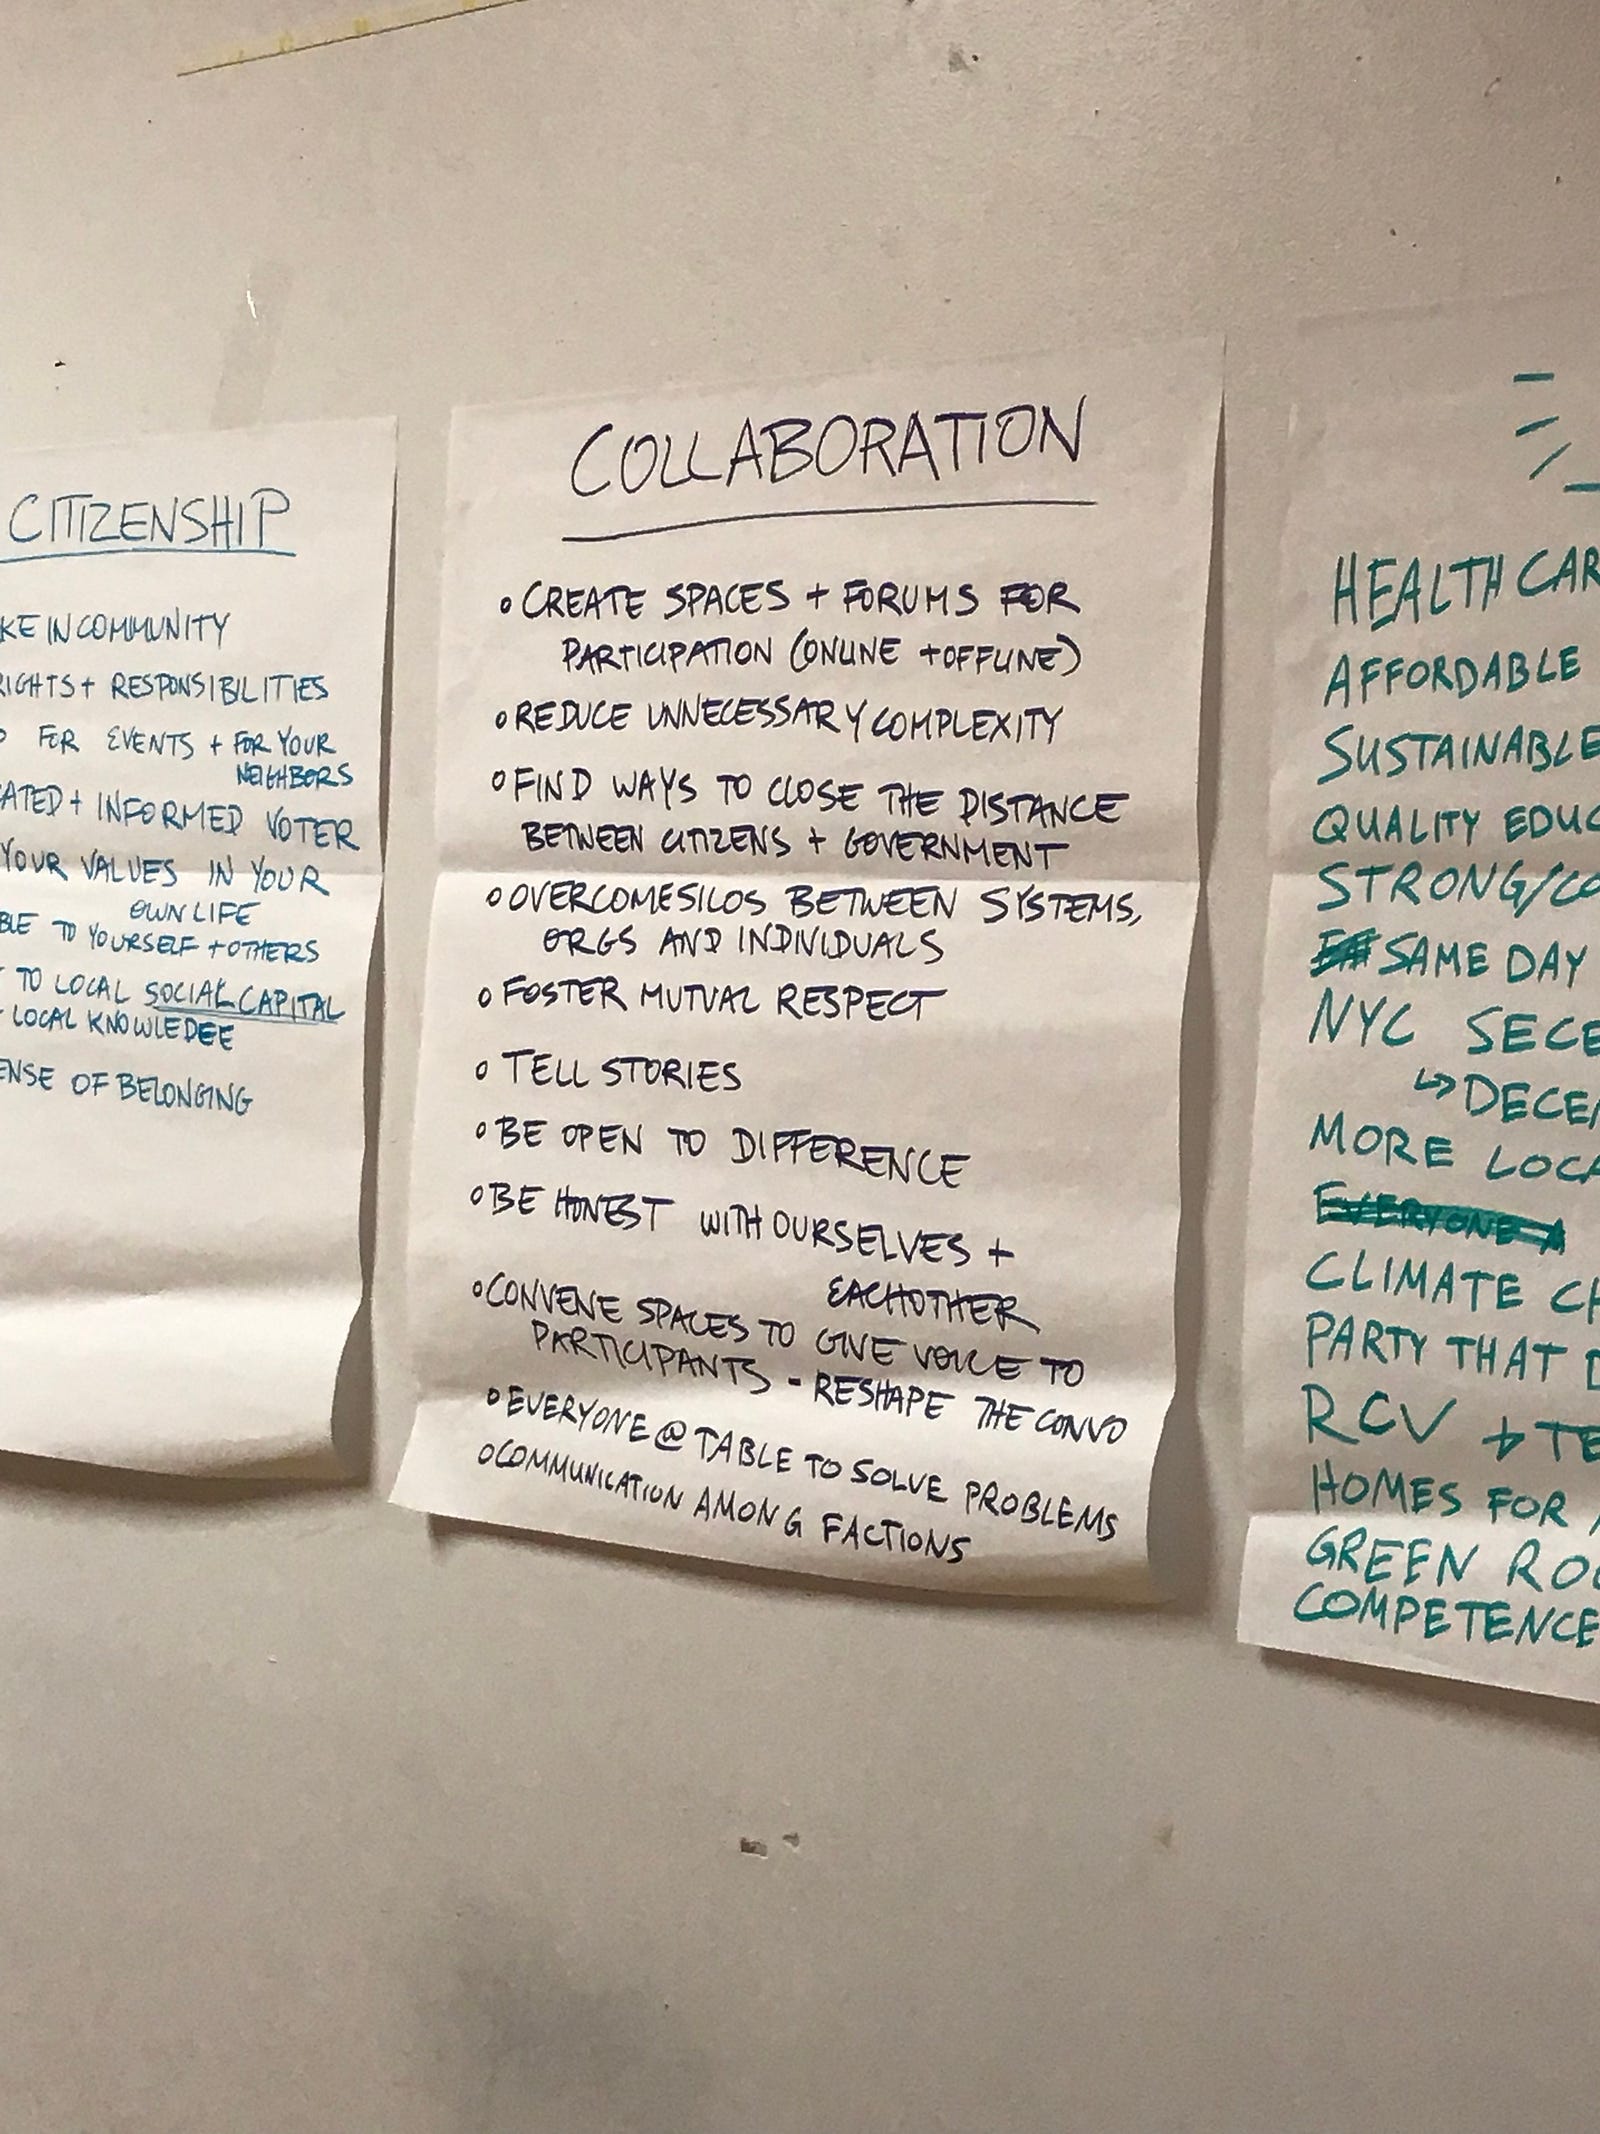 CITIZENSHIP
IN COMMUNITY
RIGHTS + RESPONSIBILITIES
FOR EVENTS + FOR YOUR
NEIGHBORS
+ INFORMED VOTER
YOUR VALUES IN YOUR
OWN LIFE
TO YOURSELF + OTHERS
TO LOCAL SOCIAL CAPITAL
LOCAL KNOWLEDEE
OF BELONGING
COLLABORATION
o CREATE SPACES + FORUMS FOR
PARTICIPATION (ONLINE + OFFLINE)
o REDUCE UNNECESSARY COMPLEXITY
o FIND WAYS TO CLOSE THE DISTANCE
BETWEEN CITIZENS + GOVERNMENT
o OVERCOME SILOS BETWEEN SYSTEMS,
ORGS AND INDIVIDUALS
o FOSTER MUTUAL RESPECT
o TELL STORIES
o BE OPEN TO DIFFERENCE
o BE HONEST WITH OURSELVES +
EACHOTHER
o CONVENE SPACES TO GIVE VOICE TO
PARTICIPANTS - RESHAPE THE CONVO
o EVERYONE @ TABLE TO SOLVE PROBLEMS
o COMMUNICATION AMONG FACTIONS
HEALTH CAR
AFFORDABLE
SUSTAINABLE
QUALITY EDUC
STRONG/CO
SAME DAY
NYC SECE
↳ DECEN
MORE LOCA
EVERYONE A
CLIMATE CH
PARTY THAT D
RCV + TE
HOMES FOR
GREEN ROO
COMPETENCE